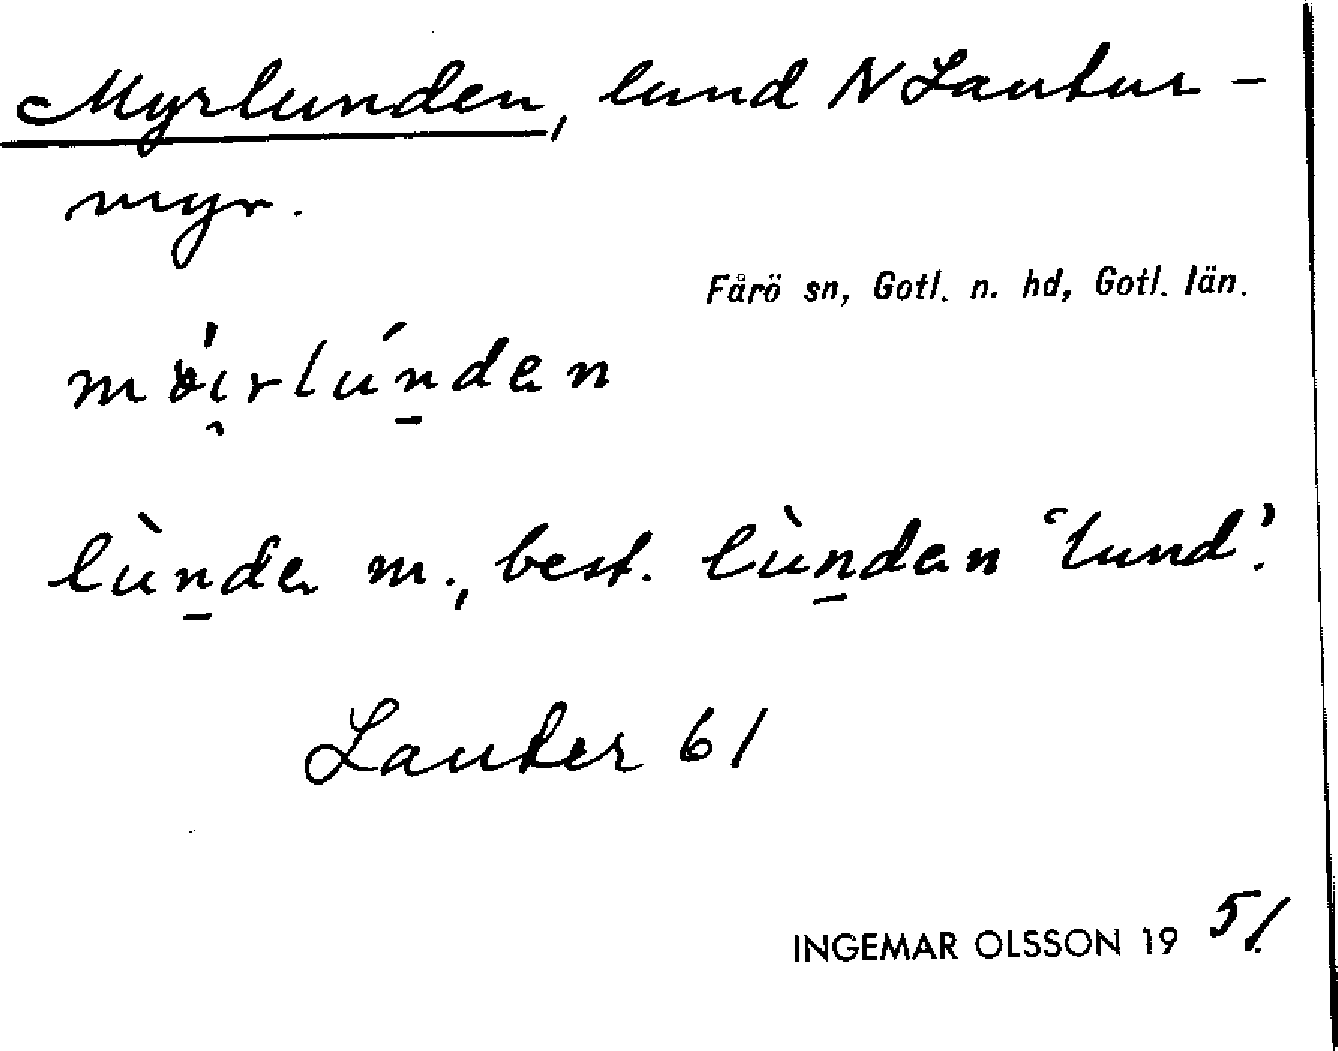 Myrlunden, lund N Lautur-
myr.
Fårö sn, Gotl. n. hd, Gotl. län.
lùnde m., best. lùnden 'lund'.
Lauter 61
INGEMAR OLSSON 19 51.